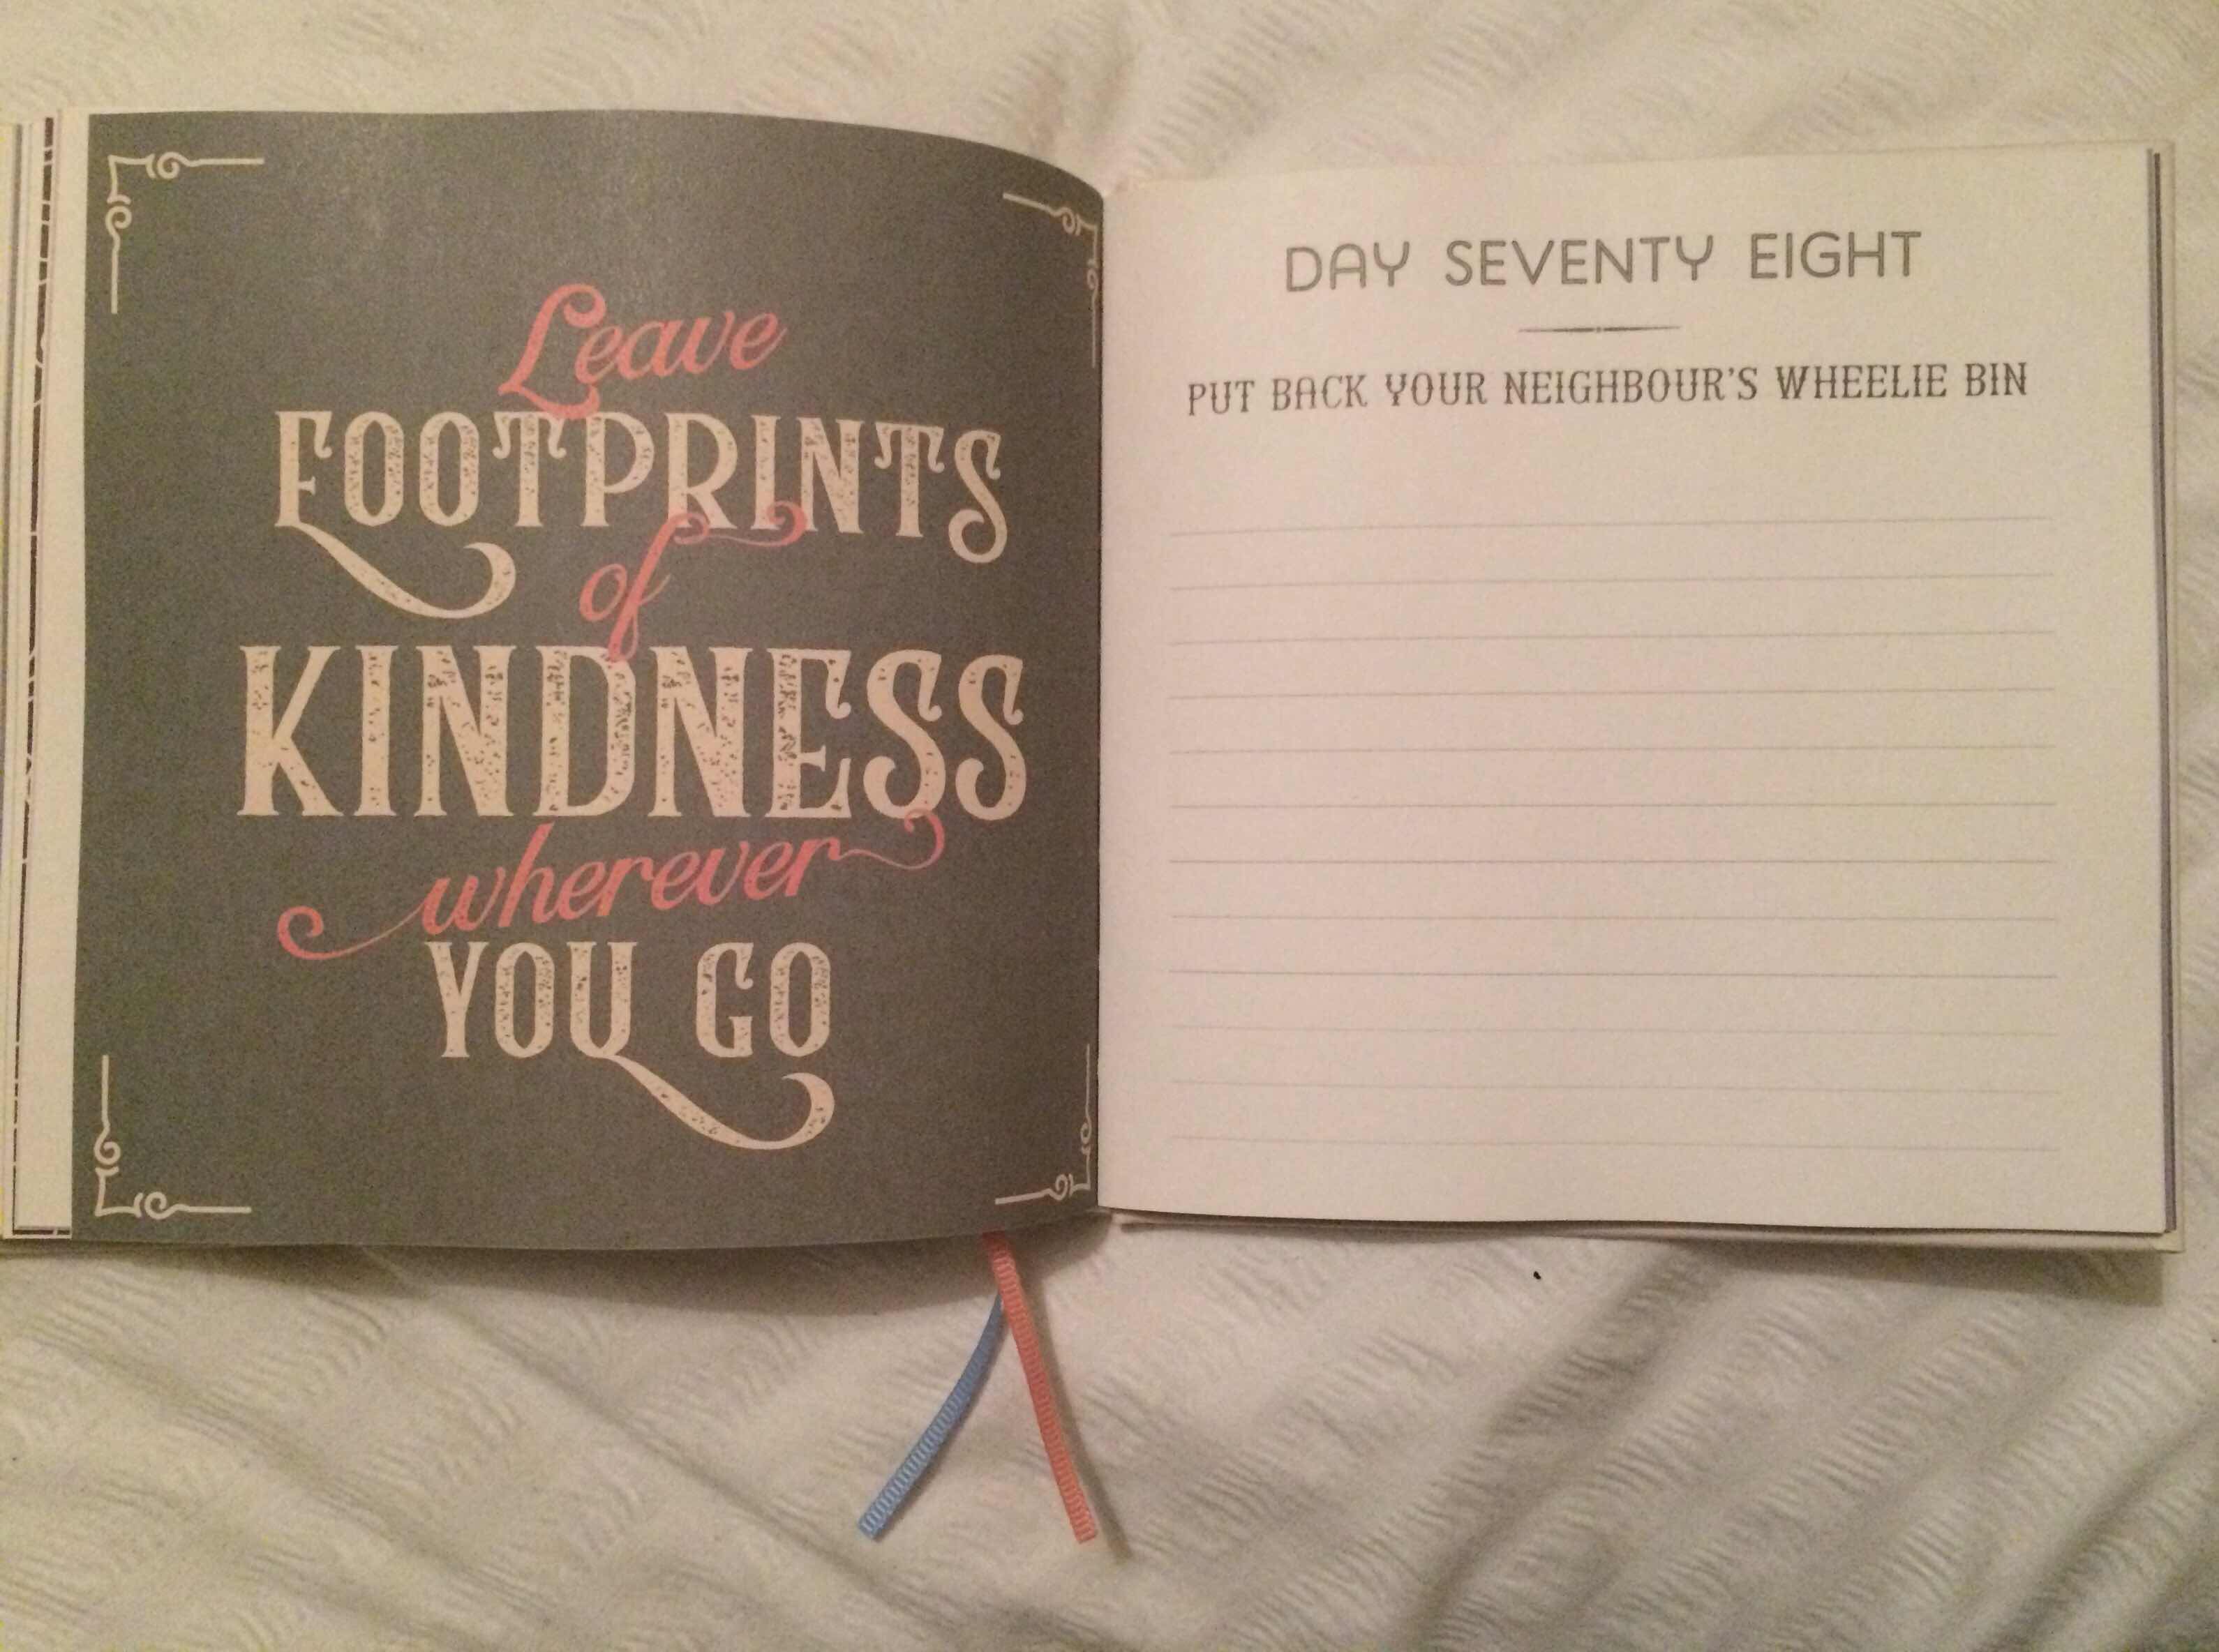 Leave
FOOTPRINTS
of
KINDNESS
wherever
YOU GO
DAY SEVENTY EIGHT
PUT BACK YOUR NEIGHBOUR'S WHEELIE BIN